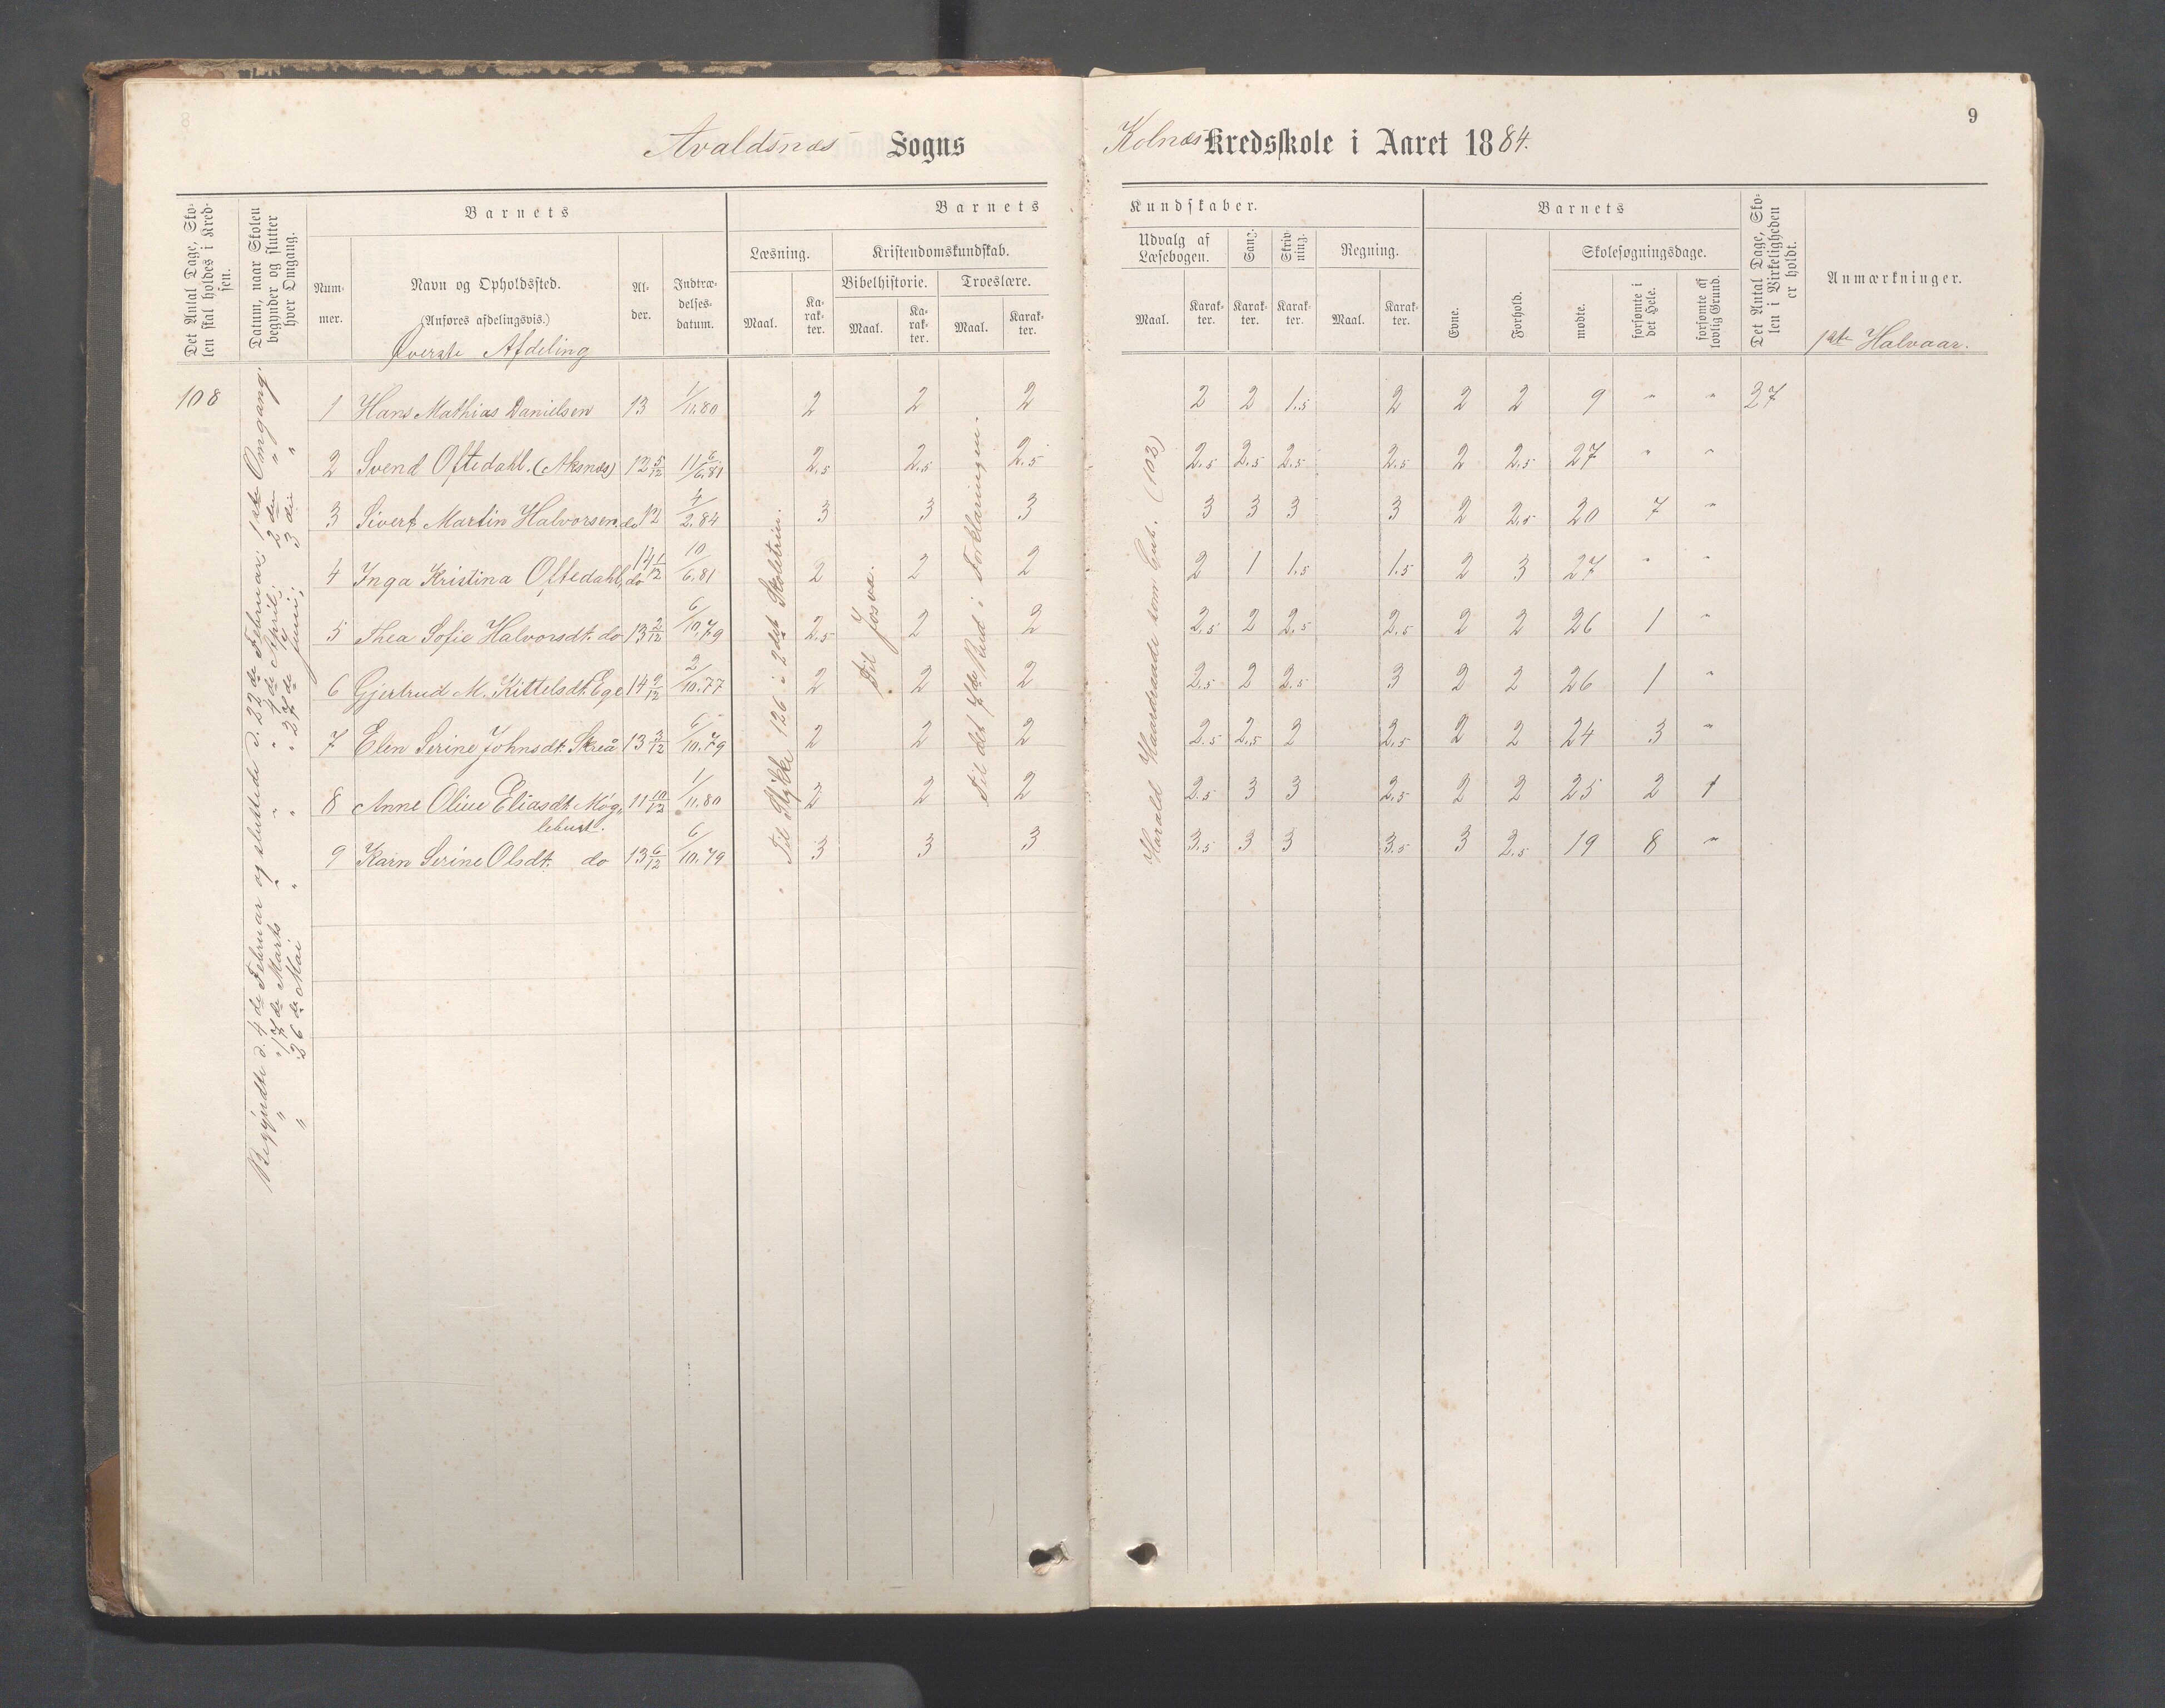 9
Avaldsnæs Sogns
Kolnæs Kredsskole i Aaret 1884.
Det Antal Dage, Skolen skal holdes i Kredsen.
Datum, naar Skolen begynder og slutter hver Omgang.
Barnets
Barnets
Kundskaber.
Barnets
Det Antal Dage, Skolen i Virkeligheden er holdt.
Anmærkninger.
Nummer.
Navn og Opholdssted.
(Anføres afdelingsvis.)
Alder.
Indtrædelsesdatum.
Læsning.
Kristendomskundskab.
Bibelhistorie.
Troeslære.
Udvalg af Læsebogen.
Sang.
Skrivning.
Regning.
Evne.
Forhold.
Skolesøgningsdage.
Maal.
Karakter.
Maal.
Karakter.
Maal.
Karakter.
Maal.
Karakter.
Karakter.
Karakter.
Maal.
Karakter.
mødte.
forsømte i det Hele.
forsømte af lovlig Grund.
Øverste Afdeling
1ste Halvaar.
108
Begyndte d. 4de Februar og sluttede d. 22de Februar; 1ste Omgang.
" " 17de Marts " " 4de April; 2den "
" " 26de Mai " " 27de Juni; 3die "
Til Stykke 126 i 2det Skoletrin.
Til Josva.
Til det 7de Bud i Forklaringen.
Harald Haardraade som Gut. (102)
1 Hans Mathias Danielsen 13 1/11.80 2 2 2 2 2 1.5 2 2 2 9 " " 27
2 Svend Oftedahl. (Aksnæs) 12 5/12 11/6.81 2.5 2.5 2.5 2.5 2.5 2.5 2.5 2 2.5 27 " "
3 Sivert Martin Halvorsen do 12 4/2.84 3 3 3 3 3 3 3 2 2.5 20 7 "
4 Inga Kristina Oftedahl, do 14 1/12 10/6.81 2 2 2 2 1 1.5 1.5 2 3 27 " "
5 Thea Sofie Halvorsdt. do 13 2/12 6/10.79 2.5 2 2 2.5 2 2.5 2.5 2 2 26 1 "
6 Gjertrud M. Kittelsdt. Ege 14 9/12 2/10.77 2 2 2 2.5 2 2.5 3 2 2 26 1 "
7 Elen Serine Johnsdt. Skeiå 13 3/12 6/10.79 2 2 2 2.5 2.5 2 2.5 2 2 24 3 "
8 Anne Oline Eliasdt. Møglebust. 11 10/12 1/11.80 2 2 2 2.5 3 3 2.5 2 2 25 2 1
9 Karn Serine Olsdt. do 13 6/12 6/10.79 3 3 3 3.5 3 3 3.5 3 2.5 19 8 "